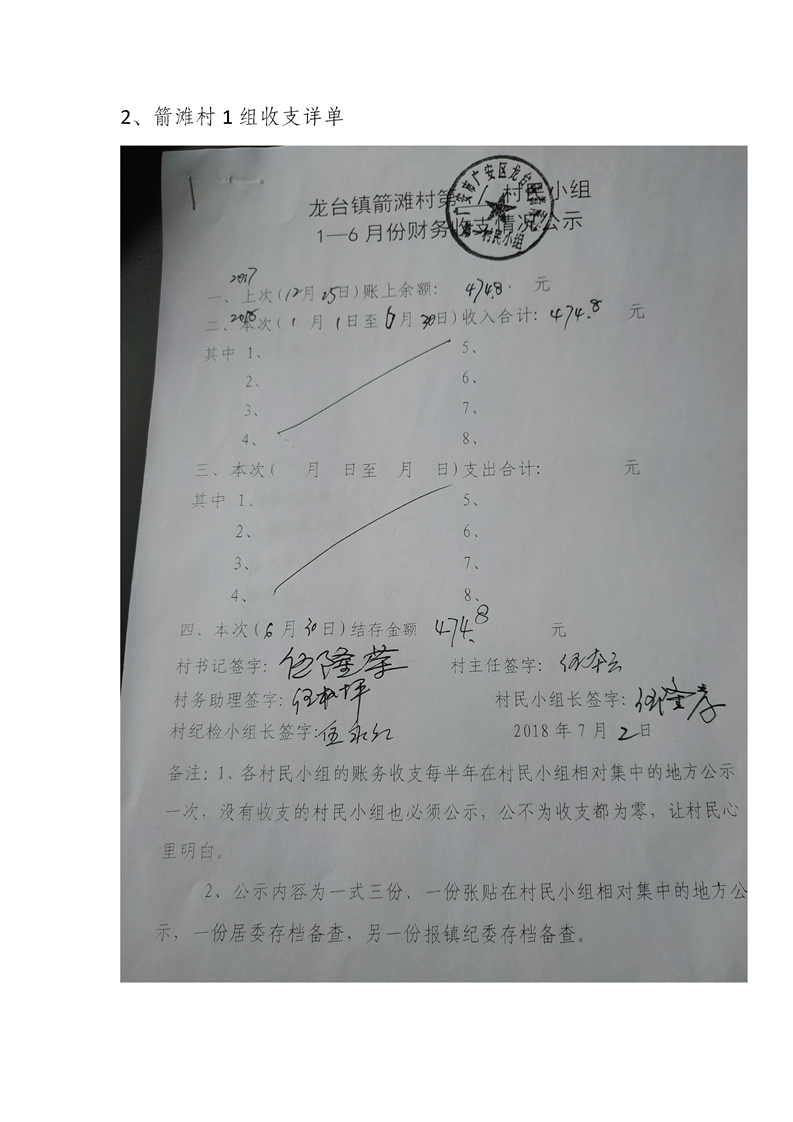 2、箭滩村1组收支详单
龙台镇箭滩村第 1 村民小组
1—6月份财务收支情况公示
2017
一、上次(12月25日)账上余额: 474.8 元
2018
二、本次(1月1日至6月30日)收入合计: 474.8 元
其中 1、 5、
2、 6、
3、 7、
4、 8、
三、本次( 月 日至 月 日)支出合计: 元
其中 1、 5、
2、 6、
3、 7、
4、 8、
四、本次(6月30日)结存金额 474.8 元
村书记签字: 伍隆荣 村主任签字:
村务助理签字: 村民小组长签字:
村纪检小组长签字: 伍永红 2018年7月2日
备注:1、各村民小组的账务收支每半年在村民小组相对集中的地方公示
一次,没有收支的村民小组也必须公示,公不为收支都为零,让村民心
里明白。
2、公示内容为一式三份、一份张贴在村民小组相对集中的地方公
示,一份居委存档备查,另一份报镇纪委存档备查。